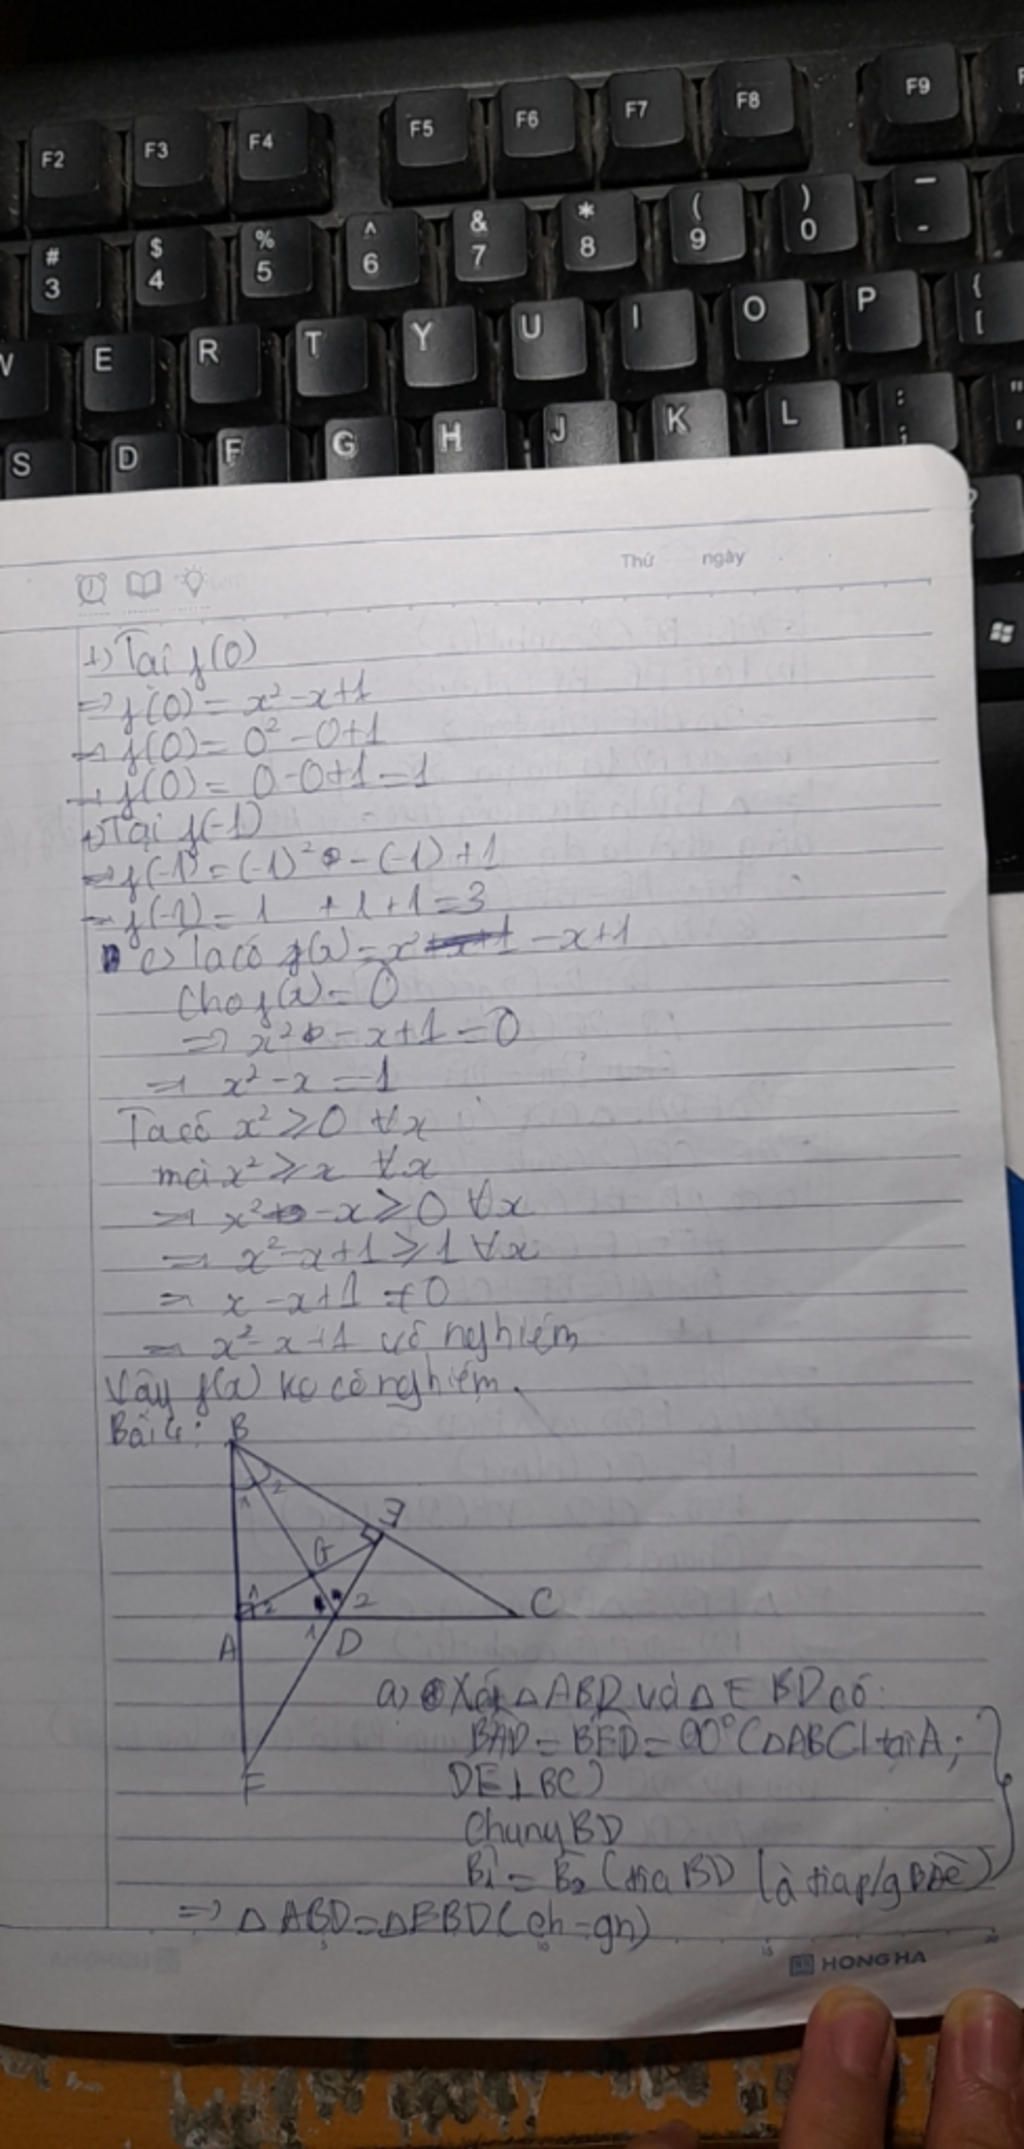 F2 F3 F4 F5 F6 F7 F8 F9 F
# $ % ^ & * ( ) —
3 4 5 6 7 8 9 0 -
W E R T Y U I O P { [
S D F G H J K L : ; " '
Thứ ngày
+) Tại f(0)
=> f(0) = x² - x + 1
=> f(0) = 0² - 0 + 1
=> f(0) = 0 - 0 + 1 = 1
+) Tại f(-1)
=> f(-1) = (-1)² - (-1) + 1
=> f(-1) = 1 + 1 + 1 = 3
c) Ta có f(x) = x² - x + 1
Cho f(x) = 0
=> x² - x + 1 = 0
=> x² - x = -1
Ta có x² ≥ 0 ∀x
mà x² ≥ x ∀x
=> x² - x ≥ 0 ∀x
=> x² - x + 1 ≥ 1 ∀x
=> x - x + 1 ≠ 0
=> x² - x + 1 vô nghiệm
Vậy f(x) ko có nghiệm.
Bài 4: B
1 2
E
G
1 2 2 C
A 1 D
F
a) Xét △ABD và △EBD có:
BAD = BED = 90° (△ABC ⊥ tại A;
DE ⊥ BC)
Chung BD
B1 = B2 (tia BD là tia p/g BAC)
=> △ABD = △EBD (ch - gn)
5 10 15 20
HONG HA